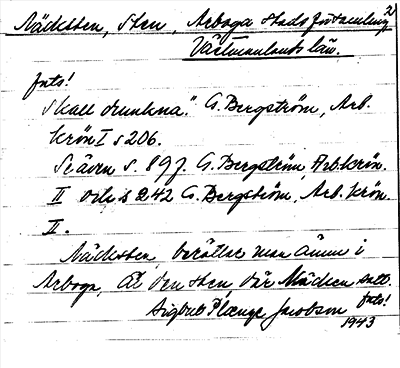 Näcksten, Sten, Arboga Stadsförsamling, 2
Västmanlands län.
forts!
skall drunkna." G. Bergström, Arb.
krön I s 206.
Se även s. 897. G. Bergström, Arb. krön.
II och s 242 G. Bergström, Arb. krön.
II.
Näcksten berättar man ännu i
Arboga, är den sten där Näcken satt.
forts!
Sigbrit Plænge Jacobson
1943